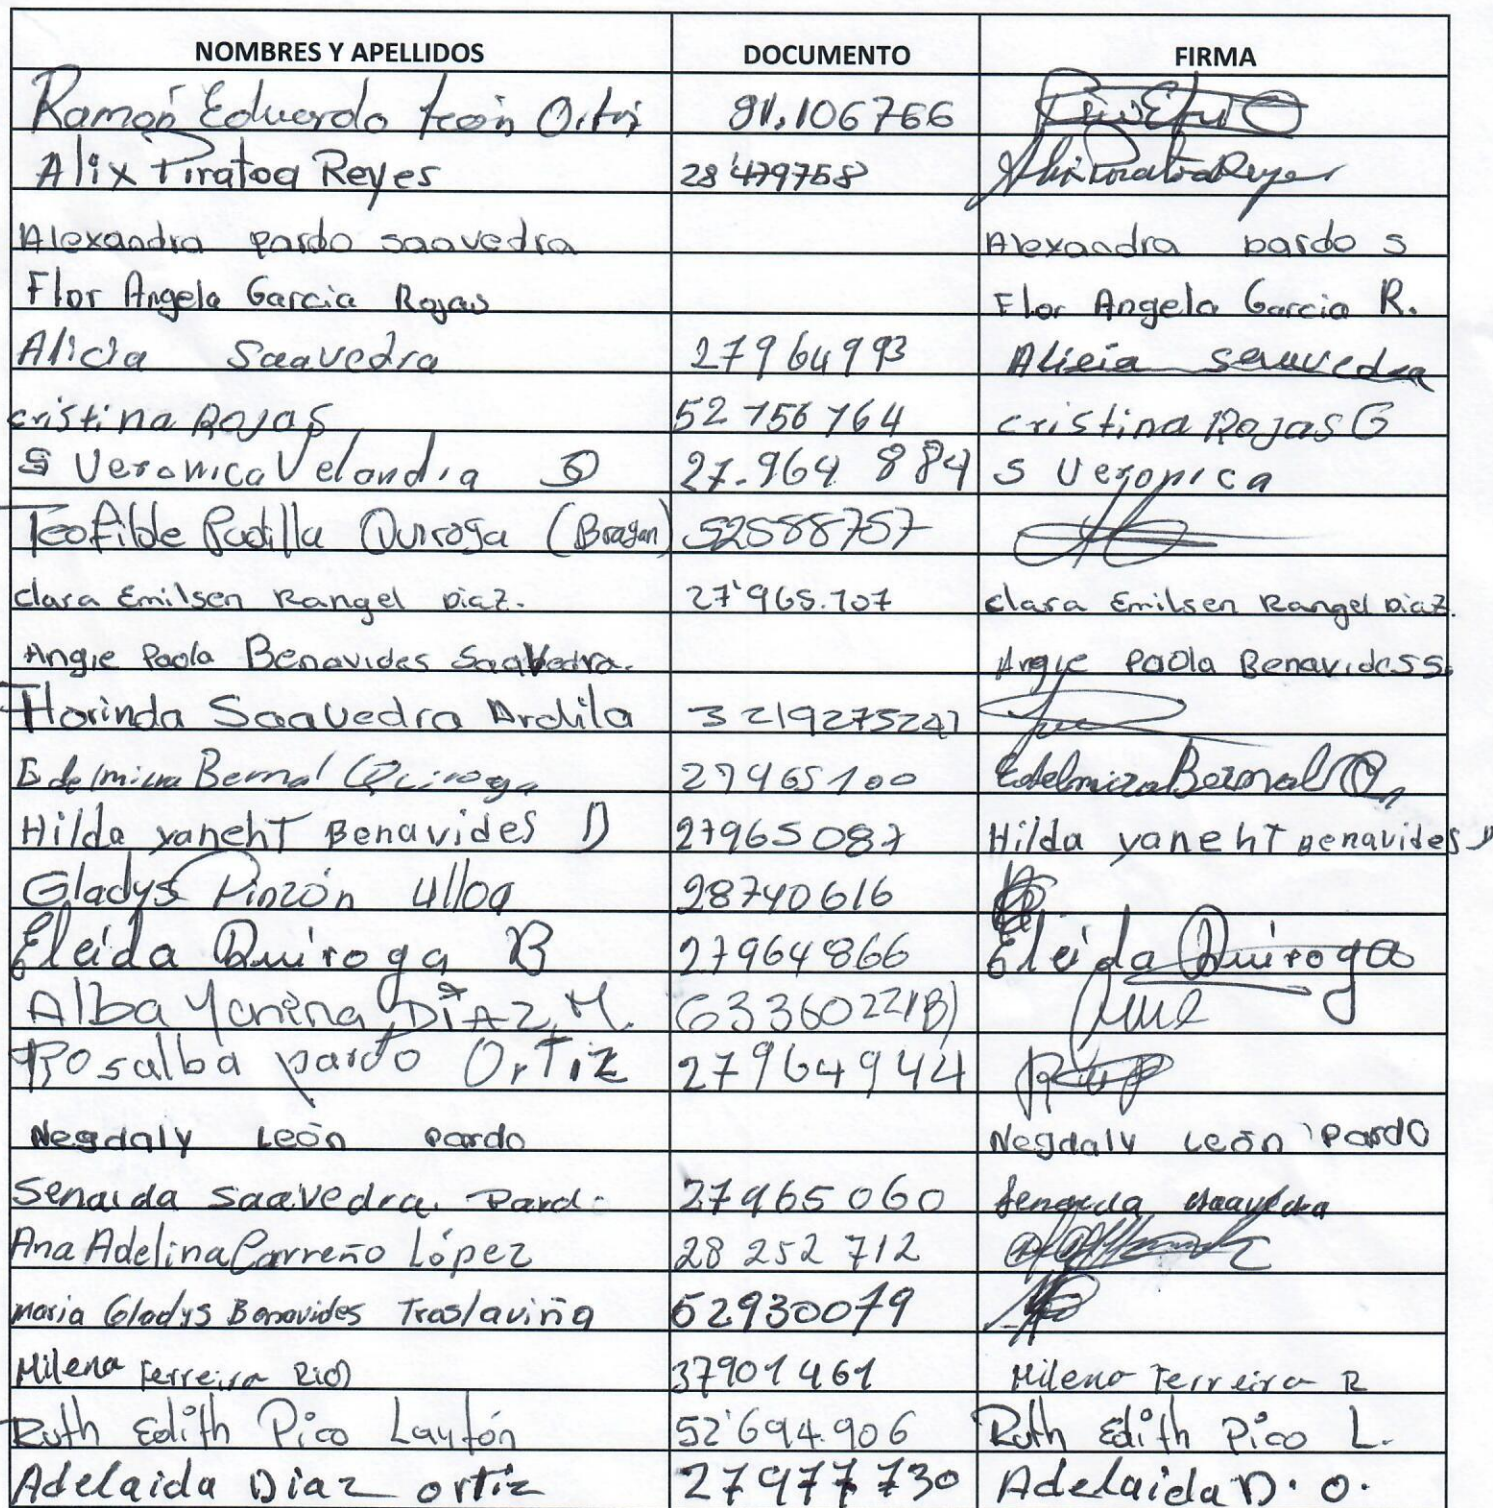 NOMBRES Y APELLIDOS DOCUMENTO FIRMA
Ramón Eduardo León Ortiz 91.106766
Alix Piratoa Reyes 28'479758 Alix Piratoa Reyes
Alexandra pardo saavedra Alexandra pardo s
Flor Angela Garcia Rojas Flor Angela Garcia R.
Alicia Saavedra 27964993 Alicia saavedra
cristina Rojas 52756764 cristina Rojas G
S Veronica Velandia S 27.964 884 S Veronica
Teofilde Padilla Quiroga (Brayan) 52588757
clara Emilsen Rangel Diaz. 27'965.107 clara Emilsen Rangel Diaz.
Angie Paola Benavides Saavedra. Angie Paola Benavides S.
Florinda Saavedra Ardila 3219275247
Edelmira Bernal Quiroga 27965100 Edelmira Bernal Q.
Hilda yanehT Benavides D 27965087 Hilda yanehT Benavides D
Gladys Pinzón Ulloa 28740616
Eleida Quiroga B 27964866 Eleida Quiroga
Alba Yanina DÍAZ M. 63360221(B)
Rosalba pardo OrTiz 27964944
Negdaly León pardo Negdaly León Pardo
Senaida saavedra. Pardo 27965060 Senaida saavedra
Ana Adelina Carreño López 28 252 712
maria Gladys Benavides Traslaviña 52930079
Milena Ferreira Rios 37901461 Milena Ferreira R
Ruth Edith Pico Laytón 52'694.906 Ruth Edith Pico L.
Adelaida Diaz ortiz 27977730 Adelaida D. O.